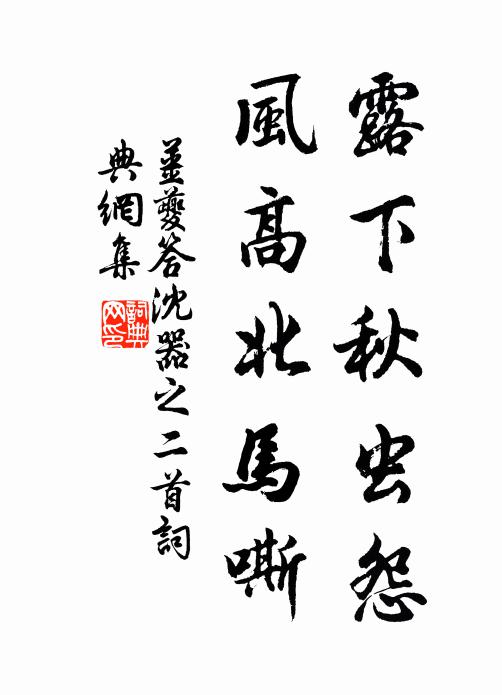 露下秋虫怨
風高北馬嘶
姜夔答沈器之二首詞
典網集
詞典网印